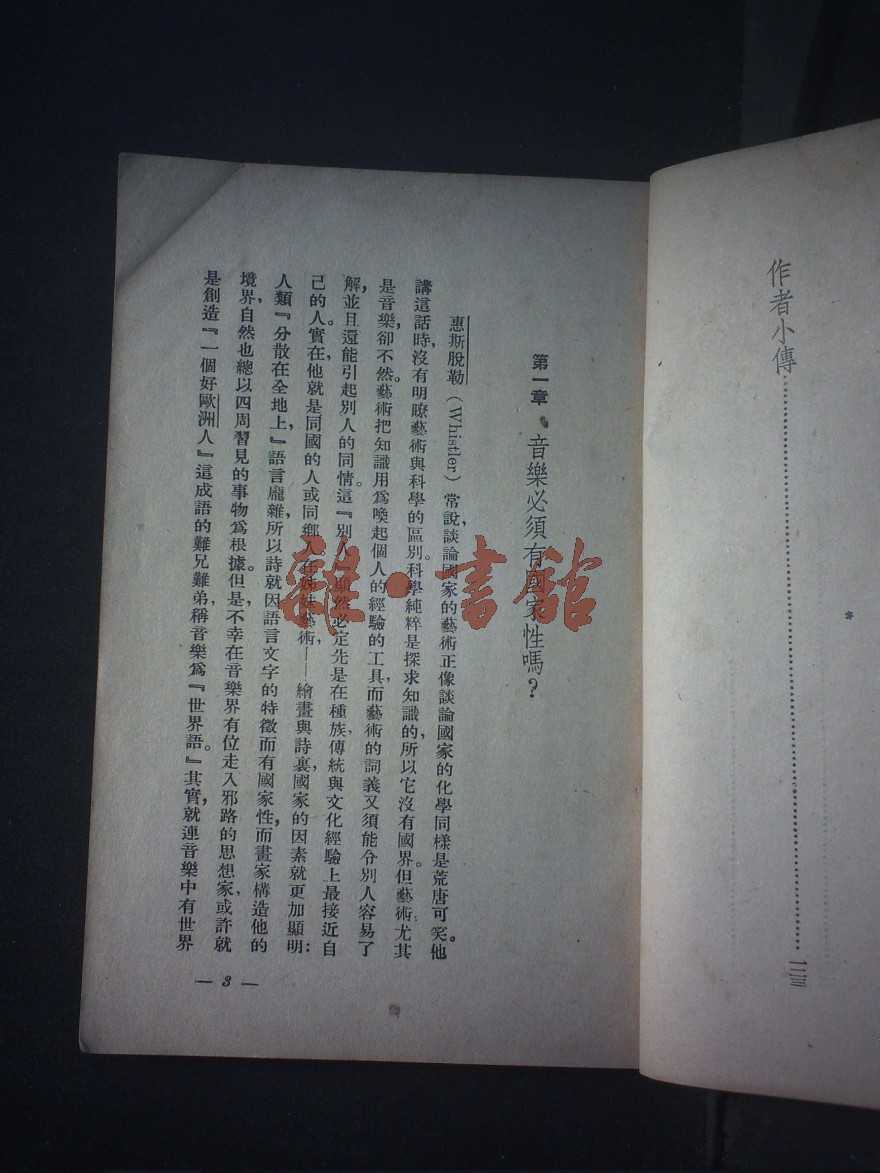 作者小傳……………………………………一二三
第一章 音樂必須有國家性嗎？
惠斯脫勒（Whistler）常說，談論國家的藝術正像談論國家的化學同樣是荒唐可笑。他
講這話時，沒有明瞭藝術與科學的區別。科學純粹是探求知識的，所以它沒有國界。但藝術尤其
是音樂，卻不然。藝術把知識用爲喚起個人的經驗的工具，而藝術的詞義又須能分別人容易了
解，並且還能引起別人的同情。這『別人』顯然必定先是在種族，傳統與文化經驗上最接近自
己的人。實在他就是同國的人或同鄉人。在姊妹藝術——繪畫與詩裏，國家的因素就更加顯明：
人類『分散在全地上，』語言龐雜，所以詩就因語言文字的特徵而有國家性，而畫家構造他的
境界，自然也總以四周習見的事物爲根據。但是，不幸在音樂界有位走入邪路的思想家，或許就
是創造『一個好歐洲人』這成語的難兄難弟，稱音樂爲『世界語。』其實，就連音樂中有世界
— 3 —
雜·書館